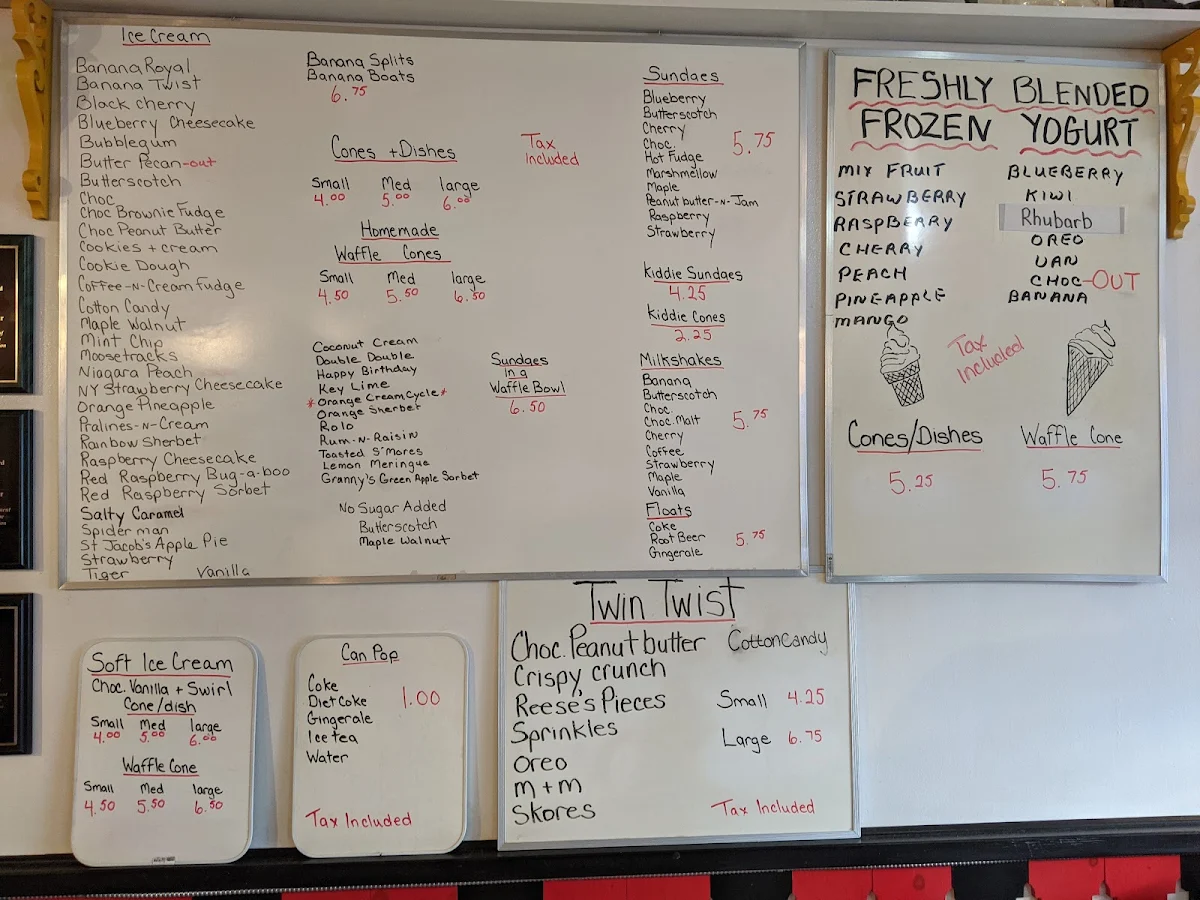 Ice Cream
Banana Royal
Banana Twist
Black cherry
Blueberry Cheesecake
Bubblegum
Butter Pecan-out
Butterscotch
Choc
Choc Brownie Fudge
Choc Peanut Butter
Cookies + cream
Cookie Dough
Coffee-N-Cream Fudge
Cotton Candy
Maple Walnut
Mint Chip
Moosetracks
Niagara Peach
NY Strawberry Cheesecake
Orange Pineapple
Pralines-N-Cream
Rainbow Sherbet
Raspberry Cheesecake
Red Raspberry Bug-a-boo
Red Raspberry Sorbet
Salty Caramel
Spider man
St Jacob's Apple Pie
Strawberry
Tiger Vanilla
Banana Splits
Banana Boats
6.75
Cones + Dishes
Tax
included
Small Med large
4.00 5.00 6.00
Homemade
Waffle Cones
Small Med large
4.50 5.50 6.50
Coconut Cream
Double Double
Happy Birthday
Key Lime
*Orange CreamCycle*
Orange Sherbet
Rolo
Rum-N-Raisin
Toasted S'mores
Lemon Meringue
Granny's Green Apple Sorbet
No Sugar Added
Butterscotch
Maple Walnut
Sundaes
In a
Waffle Bowl
6.50
Sundaes
Blueberry
Butterscotch
Cherry
Choc.
Hot Fudge
Marshmellow
Maple
Peanutbutter-N-Jam
Raspberry
Strawberry
5.75
Kiddie Sundaes
4.25
Kiddie Cones
2.25
Milkshakes
Banana
Butterscotch
Choc.
Choc. Malt
Cherry
Coffee
Strawberry
Maple
Vanilla
5.75
Floats
Coke
Root Beer
Gingerale
5.75
FRESHLY BLENDED
FROZEN YOGURT
MIX FRUIT
STRAWBERRY
RASPBERRY
CHERRY
PEACH
PINEAPPLE
MANGO
BLUEBERRY
KIWI
Rhubarb
OREO
VAN
CHOC-OUT
BANANA
Tax
Included
Cones/Dishes
5.25
Waffle Cone
5.75
Soft Ice Cream
Choc. Vanilla + Swirl
Cone/dish
Small Med large
4.00 5.00 6.00
Waffle Cone
Small Med large
4.50 5.50 6.50
Can Pop
Coke
Diet Coke
Gingerale
Ice tea
Water
1.00
Tax Included
Twin Twist
Choc. Peanut butter
Crispy crunch
Reese's Pieces
Sprinkles
Oreo
m+m
Skores
Cotton Candy
Small 4.25
Large 6.75
Tax Included